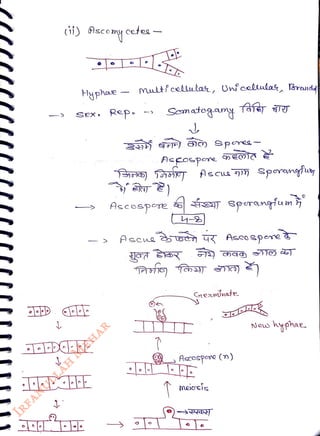 (ii) Ascomycetes —
Hyphae — multicellular, Unicellular, Branched
—> Sex. Rep. —: Somatogamy विधि द्वारा
↓
इसमें बनने वाले Spores —
Ascospore कहलाते हैं
जिनका निर्माण Ascus नाम Sporangium
में होता है।
—> Ascospore की संख्या Sporangium में
4-8
—> Ascus के फटने पर Ascospore के
मुक्त होकर नये कवक जाल का
निर्माण किया जाता है।
Germinate
New hyphae
Ascospore (n)
meiosis
IRFANULLAH MAZHAR